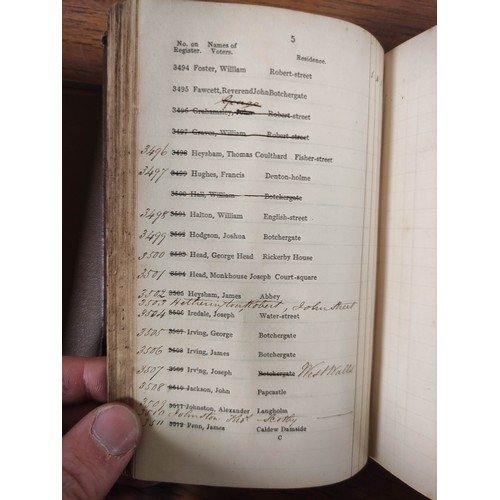 5
No. on Register. Names of Voters. Residence.
3494 Foster, William Robert-street
3495 Fawcett, Reverend John Botchergate
George
3496 Robert-street
3497 Graves, William Robert-street
3496 3498 Heysham, Thomas Coulthard Fisher-street
3497 3499 Hughes, Francis Denton-holme
3500 Hall, William Botchergate
3498 3501 Halton, William English-street
3499 3502 Hodgson, Joshua Botchergate
3500 3503 Head, George Head Rickerby House
3501 3504 Head, Monkhouse Joseph Court-square
3502 3505 Heysham, James Abbey
3503 Hetherington Robert, John Street
3504 3506 Iredale, Joseph Water-street
3505 3507 Irving, George Botchergate
3506 3508 Irving, James Botchergate
3507 3509 Irving, Joseph Botchergate West Walls
3508 3510 Jackson, John Papcastle
3509 3511 Johnston, Alexander Langholm
3510 Johnston Thos
3511 3512 James Caldew Dainside
C